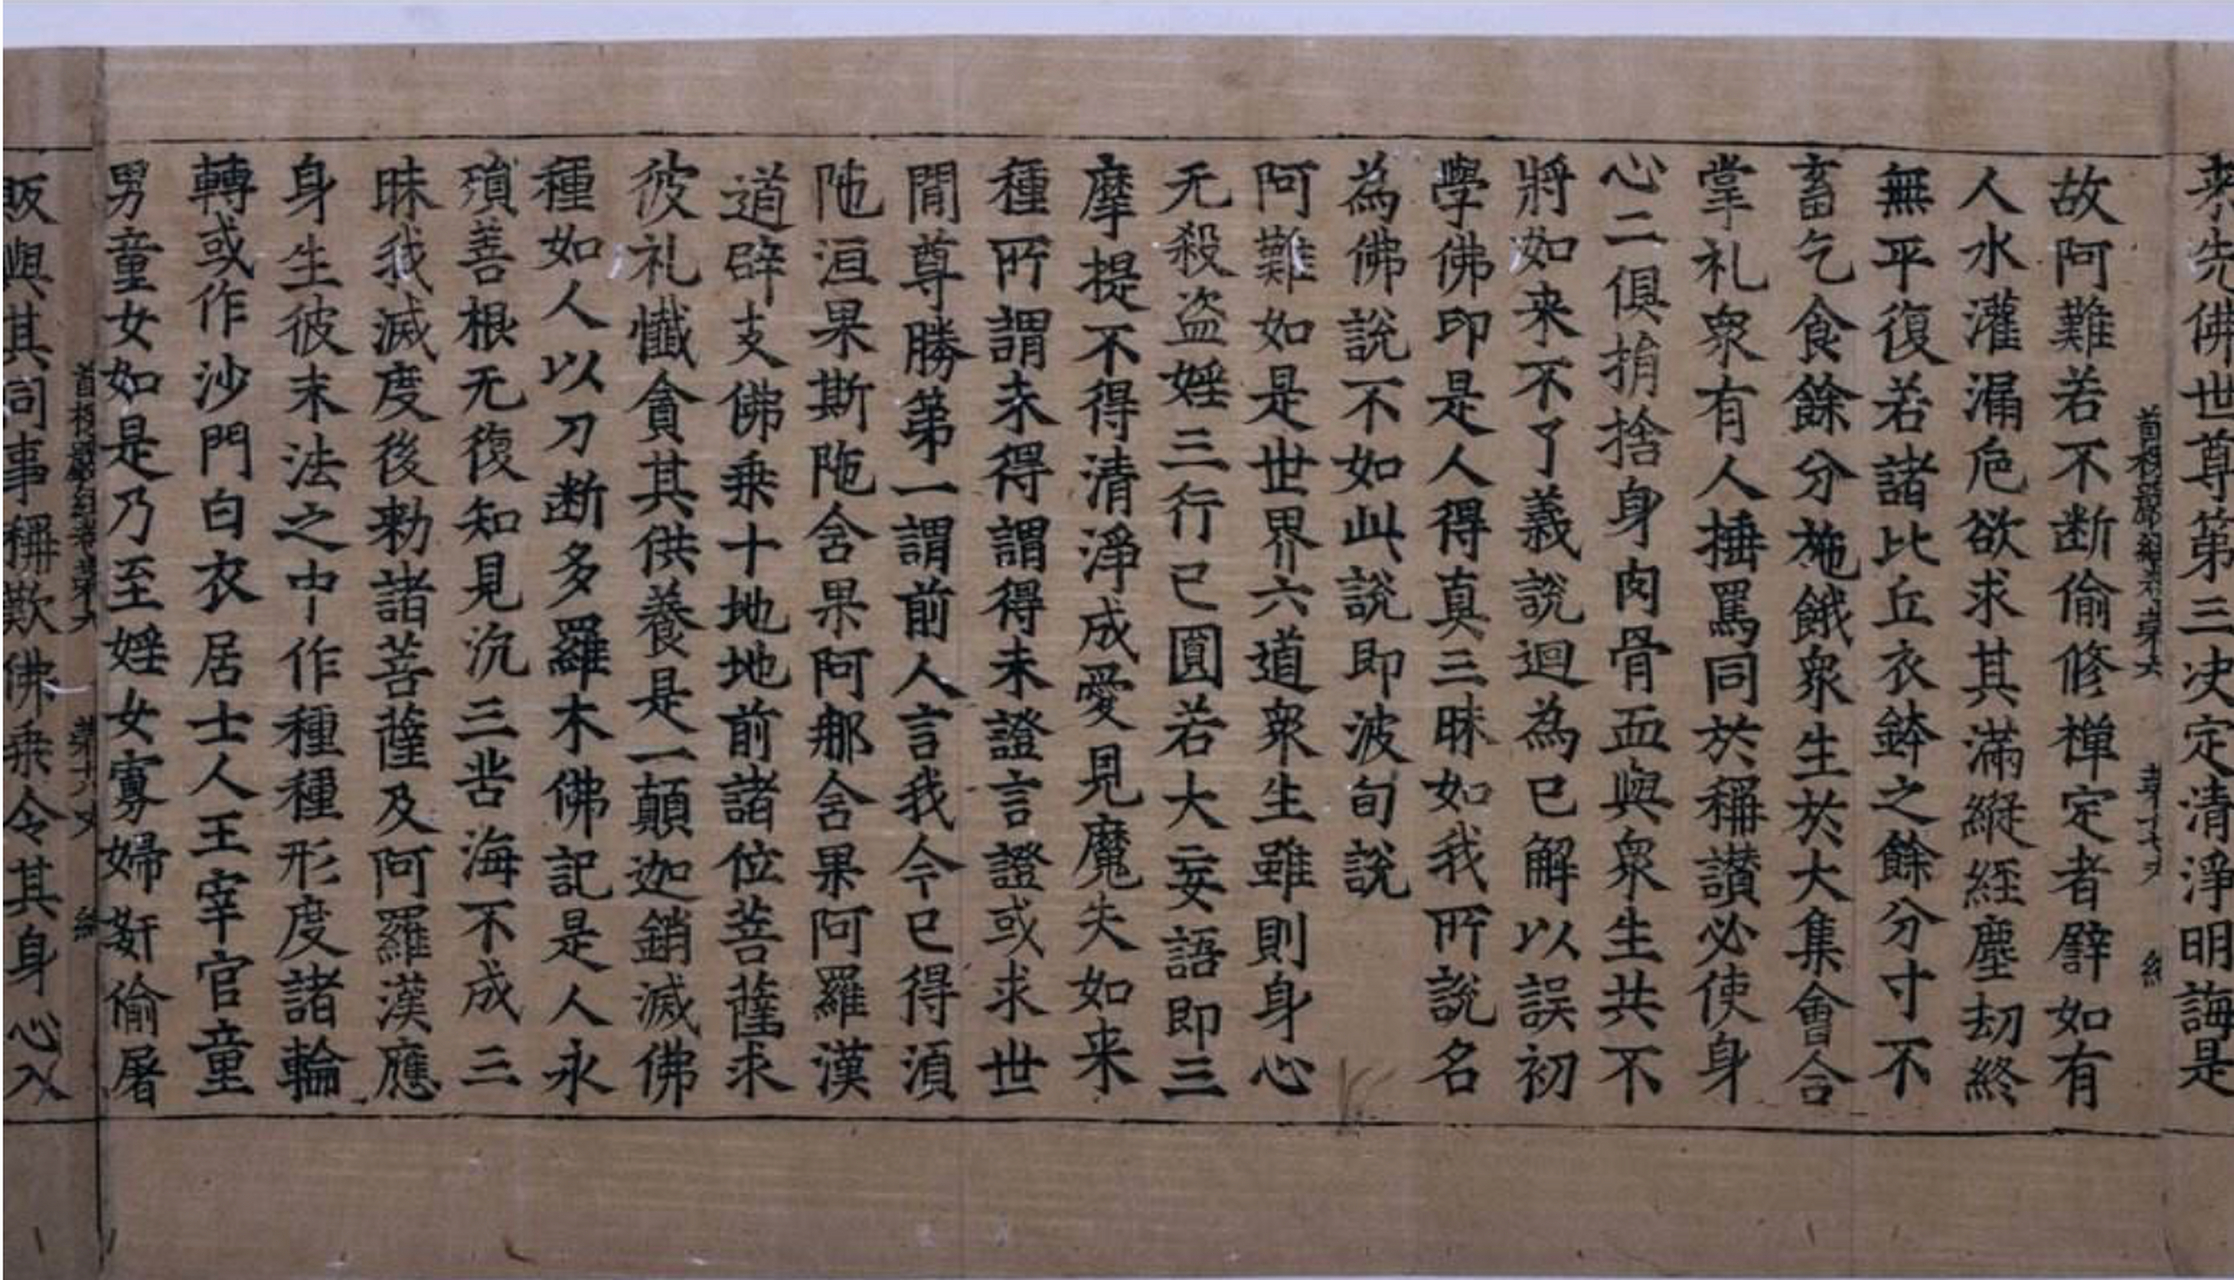 來先佛世尊第三决定清淨明誨是
首楞嚴經卷第六 第十七丈 絲
故阿難若不断偷修禅定者譬如有
人水灌漏巵欲求其滿縱經塵劫終
無平復若諸比丘衣鉢之餘分寸不
畜乞食餘分施餓衆生於大集會合
掌礼衆有人捶罵同於稱讃必使身
心二俱捐捨身肉骨血與衆生共不
將如来不了義說迴為已解以誤初
學佛印是人得真三昧如我所說名
為佛說不如此說即波旬說
阿難如是世界六道衆生雖則身心
无殺盗婬三行已圓若大妄語即三
摩提不得清淨成愛見魔失如来
種所謂未得謂得未證言證或求世
間尊勝第一謂前人言我今已得湏
陁洹果斯陁含果阿那含果阿羅漢
道辟支佛乘十地地前諸位菩薩求
彼礼懺貪其供養是一顛迦銷滅佛
種如人以刀断多羅木佛記是人永
殞善根无復知見沉三苦海不成三
昧我滅度後勑諸菩薩及阿羅漢應
身生彼末法之中作種種形度諸輪
轉或作沙門白衣居士人王宰官童
男童女如是乃至婬女寡婦姧偷屠
首楞嚴經卷第六 第十八丈 絲
販與其同事稱歎佛乘令其身心入